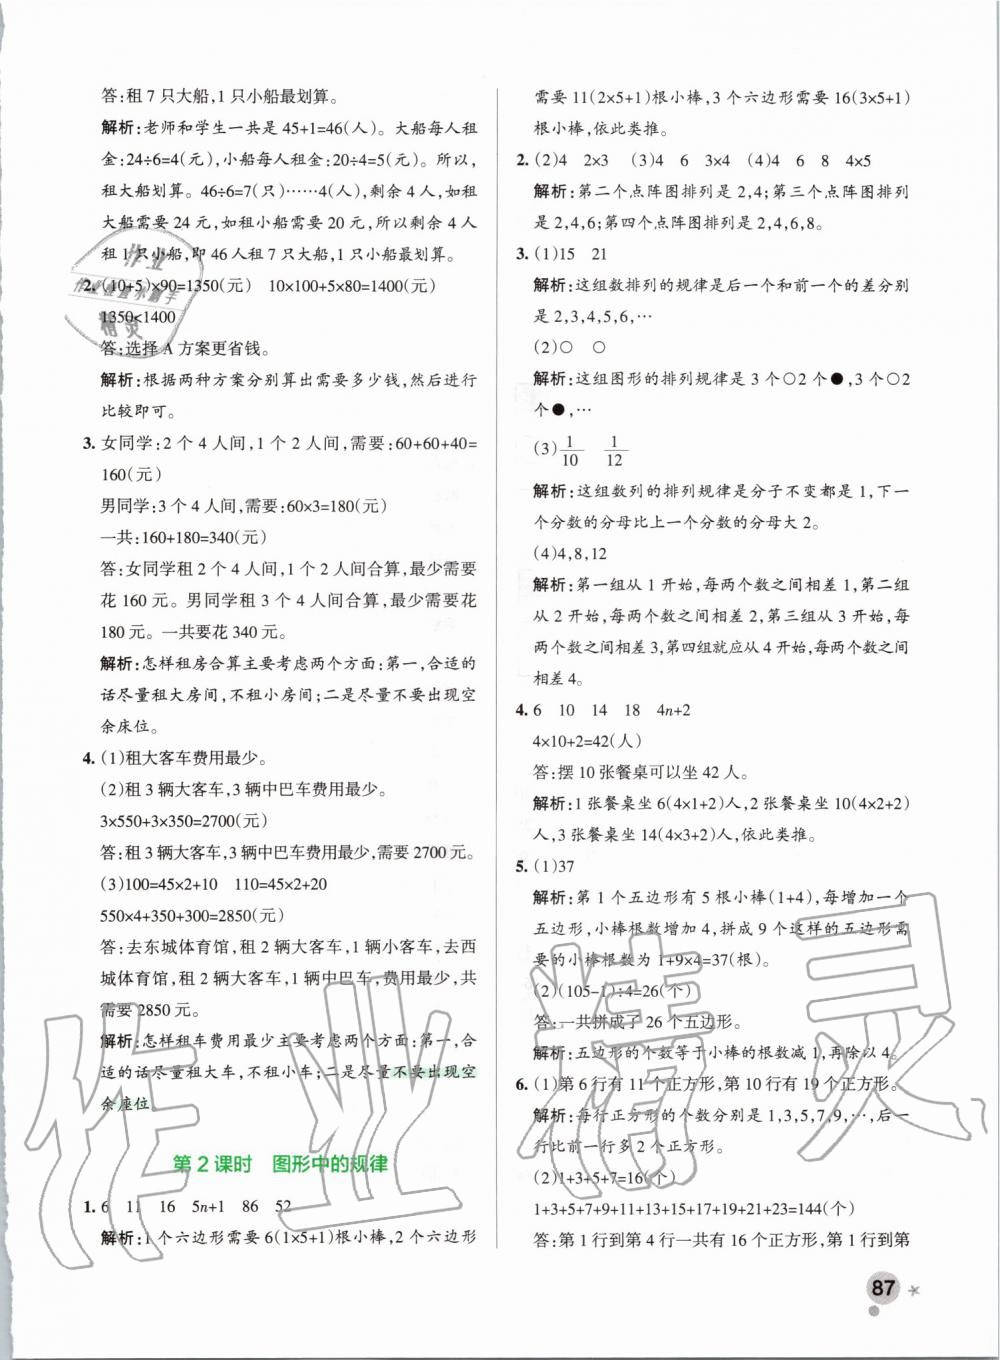 答:租 7 只大船,1 只小船最划算。
解析:老师和学生一共是 45+1=46(人)。大船每人租
金:24÷6=4(元),小船每人租金:20÷4=5(元)。所以,
租大船划算。46÷6=7(只)……4(人),剩余 4 人,如租
大船需要 24 元,如租小船需要 20 元,所以剩余 4 人
租 1 只小船,即 46 人租 7 只大船,1 只小船最划算。
2. (10+5)×90=1350(元)　10×100+5×80=1400(元)
1350<1400
答:选择 A 方案更省钱。
解析:根据两种方案分别算出需要多少钱,然后进行
比较即可。
3. 女同学:2 个 4 人间,1 个 2 人间,需要:60+60+40=
160(元)
男同学:3 个 4 人间,需要:60×3=180(元)
一共:160+180=340(元)
答:女同学租 2 个 4 人间,1 个 2 人间合算,最少需要
花 160 元。男同学租 3 个 4 人间合算,最少需要花
180 元。一共要花 340 元。
解析:怎样租房合算主要考虑两个方面:第一,合适的
话尽量租大房间,不租小房间;二是尽量不要出现空
余床位。
4. (1)租大客车费用最少。
(2)租 3 辆大客车,3 辆中巴车费用最少。
3×550+3×350=2700(元)
答:租 3 辆大客车,3 辆中巴车费用最少,需要 2700 元。
(3)100=45×2+10　110=45×2+20
550×4+350+300=2850(元)
答:去东城体育馆,租 2 辆大客车,1 辆小客车,去西
城体育馆,租 2 辆大客车,1 辆中巴车,费用最少,共
需要 2850 元。
解析:怎样租车费用最少主要考虑两个方面:第一,合
适的话尽量租大车,不租小车;二是尽量不要出现空
余座位。
第 2 课时　图形中的规律
1. 6　11　16　5n+1　86　52
解析:1 个六边形需要 6(1×5+1)根小棒,2 个六边形
需要 11(2×5+1)根小棒,3 个六边形需要 16(3×5+1)
根小棒,依此类推。
2. (2)4　2×3　(3)4　6　3×4　(4)4　6　8　4×5
解析:第二个点阵图排列是 2,4;第三个点阵图排列
是 2,4,6;第四个点阵图排列是 2,4,6,8。
3. (1)15　21
解析:这组数排列的规律是后一个和前一个的差分别
是 2,3,4,5,6,…
(2)○　○
解析:这组图形的排列规律是 3 个○2 个●,3 个○2
个●,…
(3) 1/10　1/12
解析:这组数列的排列规律是分子不变都是 1,下一
个分数的分母比上一个分数的分母大 2。
(4)4,8,12
解析:第一组从 1 开始,每两个数之间相差 1,第二组
从 2 开始,每两个数之间相差 2,第三组从 3 开始,每
两个数之间相差 3,第四组就应从 4 开始,每两个数之间
相差 4。
4. 6　10　14　18　4n+2
4×10+2=42(人)
答:摆 10 张餐桌可以坐 42 人。
解析:1 张餐桌坐 6(4×1+2)人,2 张餐桌坐 10(4×2+2)
人,3 张餐桌坐 14(4×3+2)人,依此类推。
5. (1)37
解析:第 1 个五边形有 5 根小棒(1+4),每增加一个
五边形,小棒根数增加 4,拼成 9 个这样的五边形需
要的小棒根数为 1+9×4=37(根)。
(2)(105-1)÷4=26(个)
答:一共拼成了 26 个五边形。
解析:五边形的个数等于小棒的根数减 1,再除以 4。
6. (1)第 6 行有 11 个正方形,第 10 行有 19 个正方形。
解析:每行正方形的个数分别是 1,3,5,7,9,…,后一
行比前一行多 2 个正方形。
(2)1+3+5+7=16(个)
1+3+5+7+9+11+13+15+17+19+21+23=144(个)
答:第 1 行到第 4 行一共有 16 个正方形,第 1 行到第
87
作业精灵